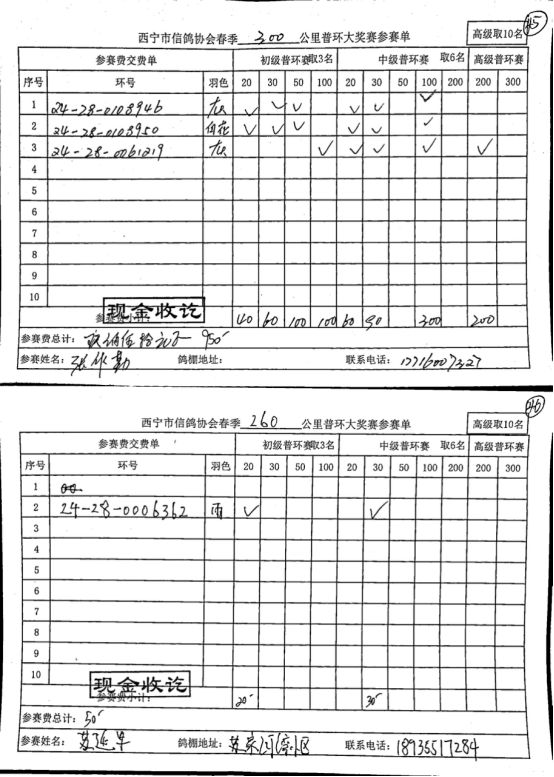 45
西宁市信鸽协会春季 300 公里普环大奖赛参赛单 高级取10名
参赛费交费单 初级普环赛取3名 中级普环赛 取6名 高级普环赛
序号 环号 羽色 20 30 50 100 20 30 50 100 200 200 300
1 24-28-0108946 ✓ ✓ ✓ ✓ ✓ ✓
2 24-28-0108950 白花 ✓ ✓ ✓ ✓ ✓ ✓
3 24-28-0061219 ✓ ✓ ✓ ✓ ✓
4
5
6
7
8
9
10
现金收讫
参赛费小计: 40 60 100 100 60 90 300 200
参赛费总计: 950
参赛姓名: 鸽棚地址: 联系电话:
46
西宁市信鸽协会春季 260 公里普环大奖赛参赛单 高级取10名
参赛费交费单 初级普环赛取3名 中级普环赛 取6名 高级普环赛
序号 环号 羽色 20 30 50 100 20 30 50 100 200 200 300
1
2 24-28-0006362 雨 ✓ ✓
3
4
5
6
7
8
9
10
现金收讫
参赛费小计: 20 30
参赛费总计: 50
参赛姓名: 鸽棚地址: 联系电话: 18935517284